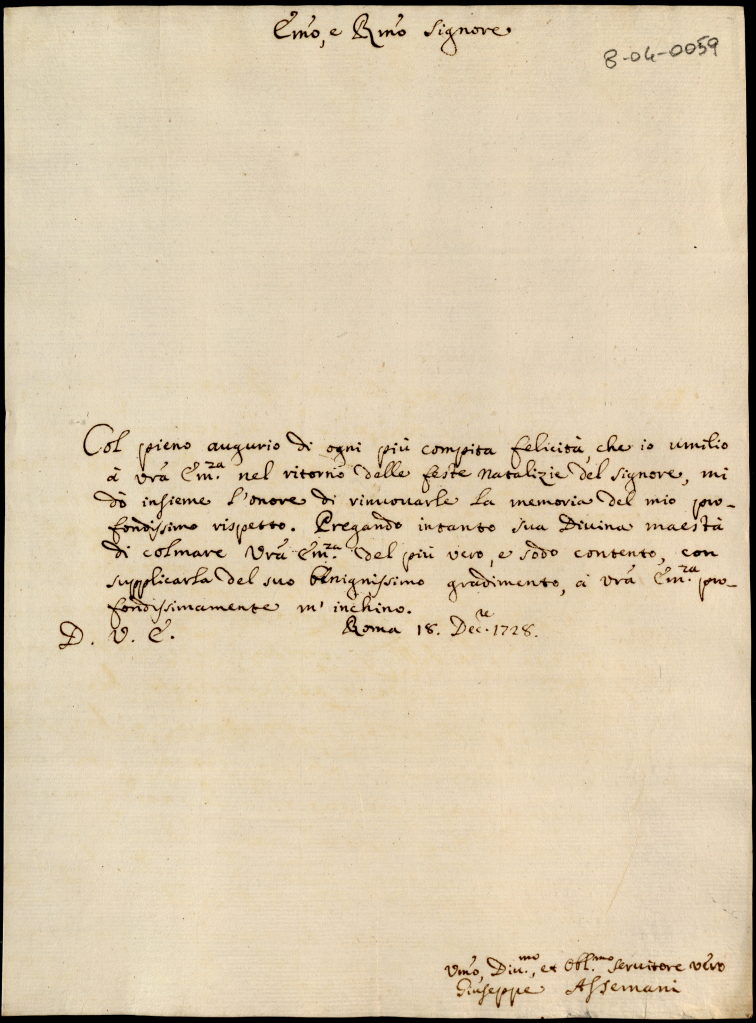 Em̃o, e Rm̃o Signore
8-04-0059
Col pieno augurio di ogni più compita felicità, che io umilio
à Vrã Em.za nel ritorno delle feste Natalizie del Signore, mi
dò insieme l'onore di rinuovarle la memoria del mio pro-
fondissimo rispetto. Pregando intanto Sua Divina Maestà
di colmare Vrã Em.za del più vero, e sodo contento, con
supplicarla del suo benignissimo gradimento, à Vrã Em.za pro-
fondissimamente m'inchino.
D. V. E.
Roma 18. Dec.re 1728.
Um̃o, Div.mo, et Obl.mo Servitore vero
Giuseppe Assemani